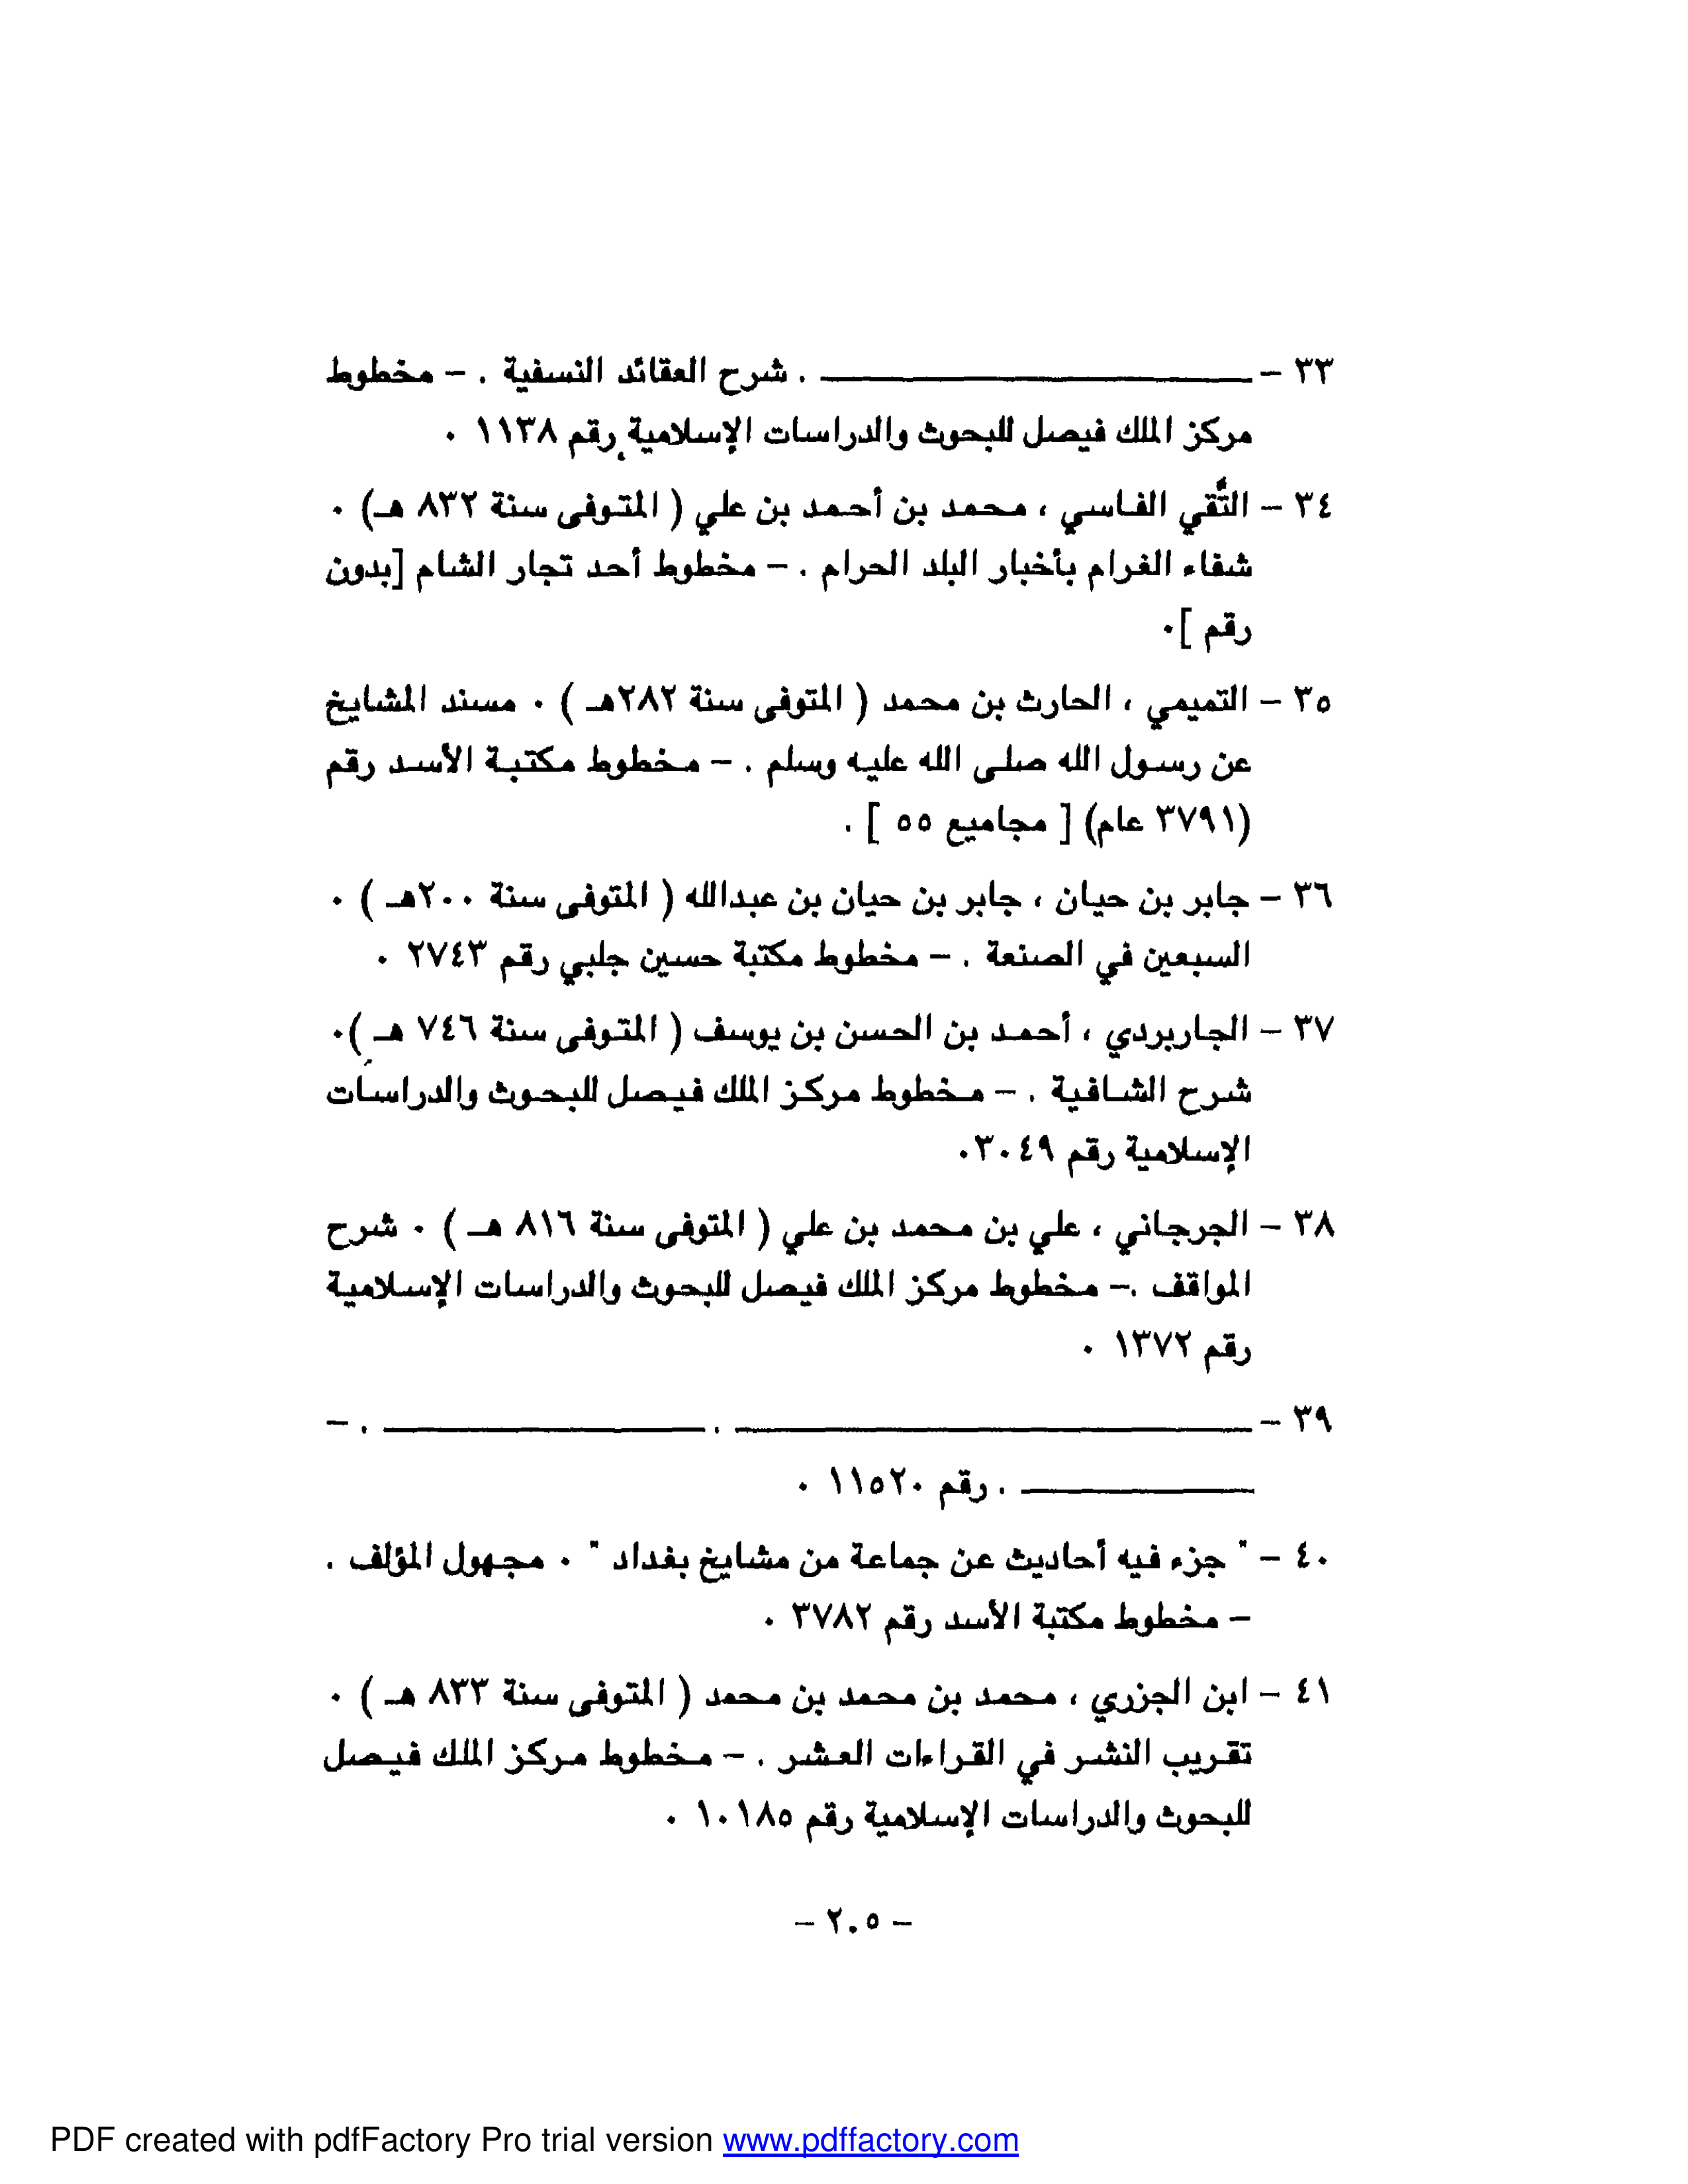 ٣٣ - ــــــــــــــــــــــــــــ . شرح العقائد النسفية . - مخطوط
مركز الملك فيصل للبحوث والدراسات الإسلامية رقم ١١٣٨ ٠
٣٤ - التُّقي الفاسي ، محمد بن أحمد بن علي ( المتوفى سنة ٨٣٢ هـ) ٠
شفاء الغرام بأخبار البلد الحرام . - مخطوط أحد تجار الشام [بدون
رقم ]٠
٣٥ - التميمي ، الحارث بن محمد ( المتوفى سنة ٢٨٢هـ ) ٠ مسند المشايخ
عن رسول الله صلى الله عليه وسلم . - مخطوط مكتبة الأسد رقم
(٣٧٩١ عام) [ مجاميع ٥٥ ] .
٣٦ - جابر بن حيان ، جابر بن حيان بن عبدالله ( المتوفى سنة ٢٠٠هـ ) ٠
السبعين في الصنعة . - مخطوط مكتبة حسين جلبي رقم ٢٧٤٣ ٠
٣٧ - الجاربردي ، أحمد بن الحسن بن يوسف ( المتوفى سنة ٧٤٦ هـ )٠
شرح الشافية . - مخطوط مركز الملك فيصل للبحوث والدراسات
الإسلامية رقم ٣٠٤٩٠
٣٨ - الجرجاني ، علي بن محمد بن علي ( المتوفى سنة ٨١٦ هـ ) ٠ شرح
المواقف .- مخطوط مركز الملك فيصل للبحوث والدراسات الإسلامية
رقم ١٣٧٢ ٠
٣٩ - ــــــــــــــــــــــــــــ . ــــــــــــــــــــ . -
ــــــــــــــــ . رقم ١١٥٢٠ ٠
٤٠ - " جزء فيه أحاديث عن جماعة من مشايخ بغداد " ٠ مجهول المؤلف .
- مخطوط مكتبة الأسد رقم ٣٧٨٢ ٠
٤١ - ابن الجزري ، محمد بن محمد بن محمد ( المتوفى سنة ٨٣٣ هـ ) ٠
تقريب النشر في القراءات العشر . - مخطوط مركز الملك فيصل
للبحوث والدراسات الإسلامية رقم ١٠١٨٥ ٠
- ٢٠٥ -
PDF created with pdfFactory Pro trial version www.pdffactory.com